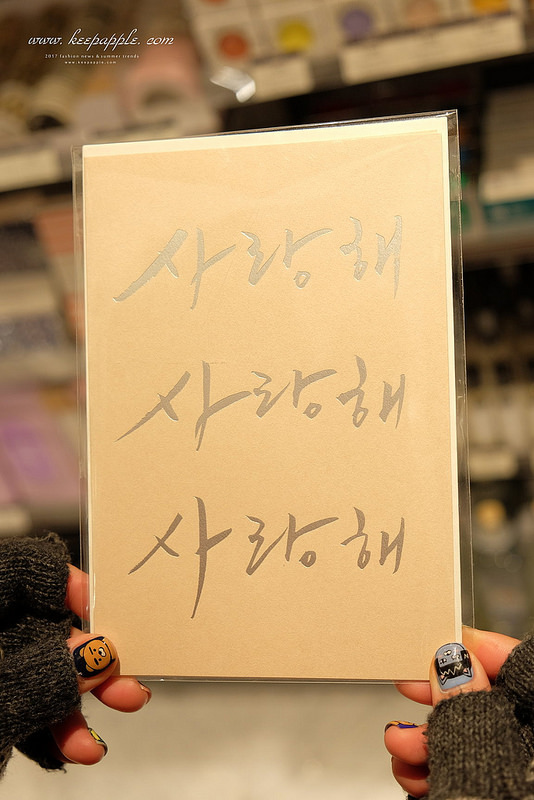 www. keepapple. com
2017 fashion news & summer trends
www.keepapple.com
사랑해
사랑해
사랑해